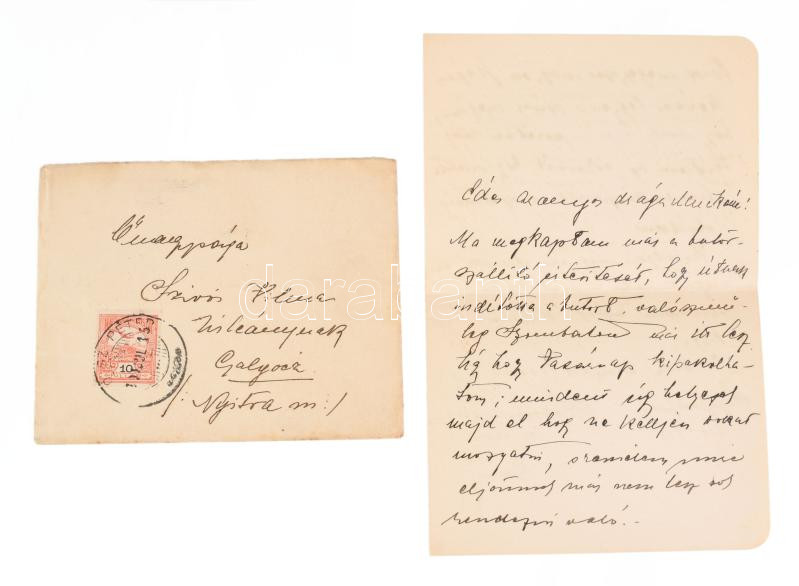 Őnagysága
Szivós Vilma
Úrleánynak
Galgócz
/: Nyitra m :/
10
darabanth
Édes aranyos drága Muczkám!
Ma megkaptam már a butor-
szállitó értesitését, hogy útnak
inditotta a butort, valószinü-
leg Szombaton már itt lesz
úgy hogy Vasárnap kipakolha-
tom; mindent úgy helyezek
majd el hogy ne kelljen sokat
mozgatni, s remélem mire
eljönnek már nem lesz sok
rendezni való.-